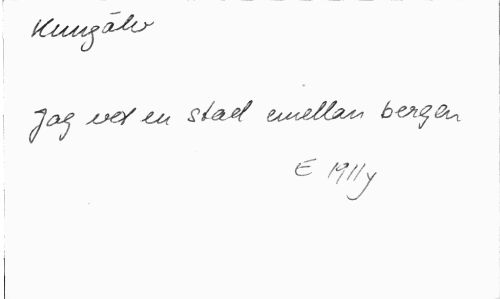 Kungälv
Jag vet en stad emellan bergen
E 1911y